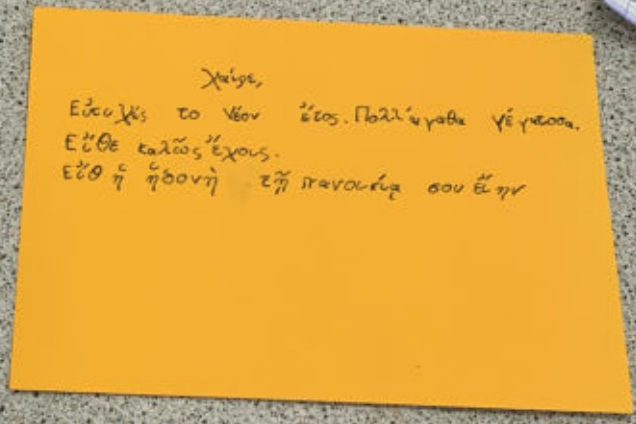 Χαῖρε,
Εὐτυχές το Νέον ἔτος. Πολλ' ἀγαθα
Εἴθε καλῶς ἔχοις.
Εἴθ ἡ ἡδονὴ τῇ πανοικίᾳ σου εἴην